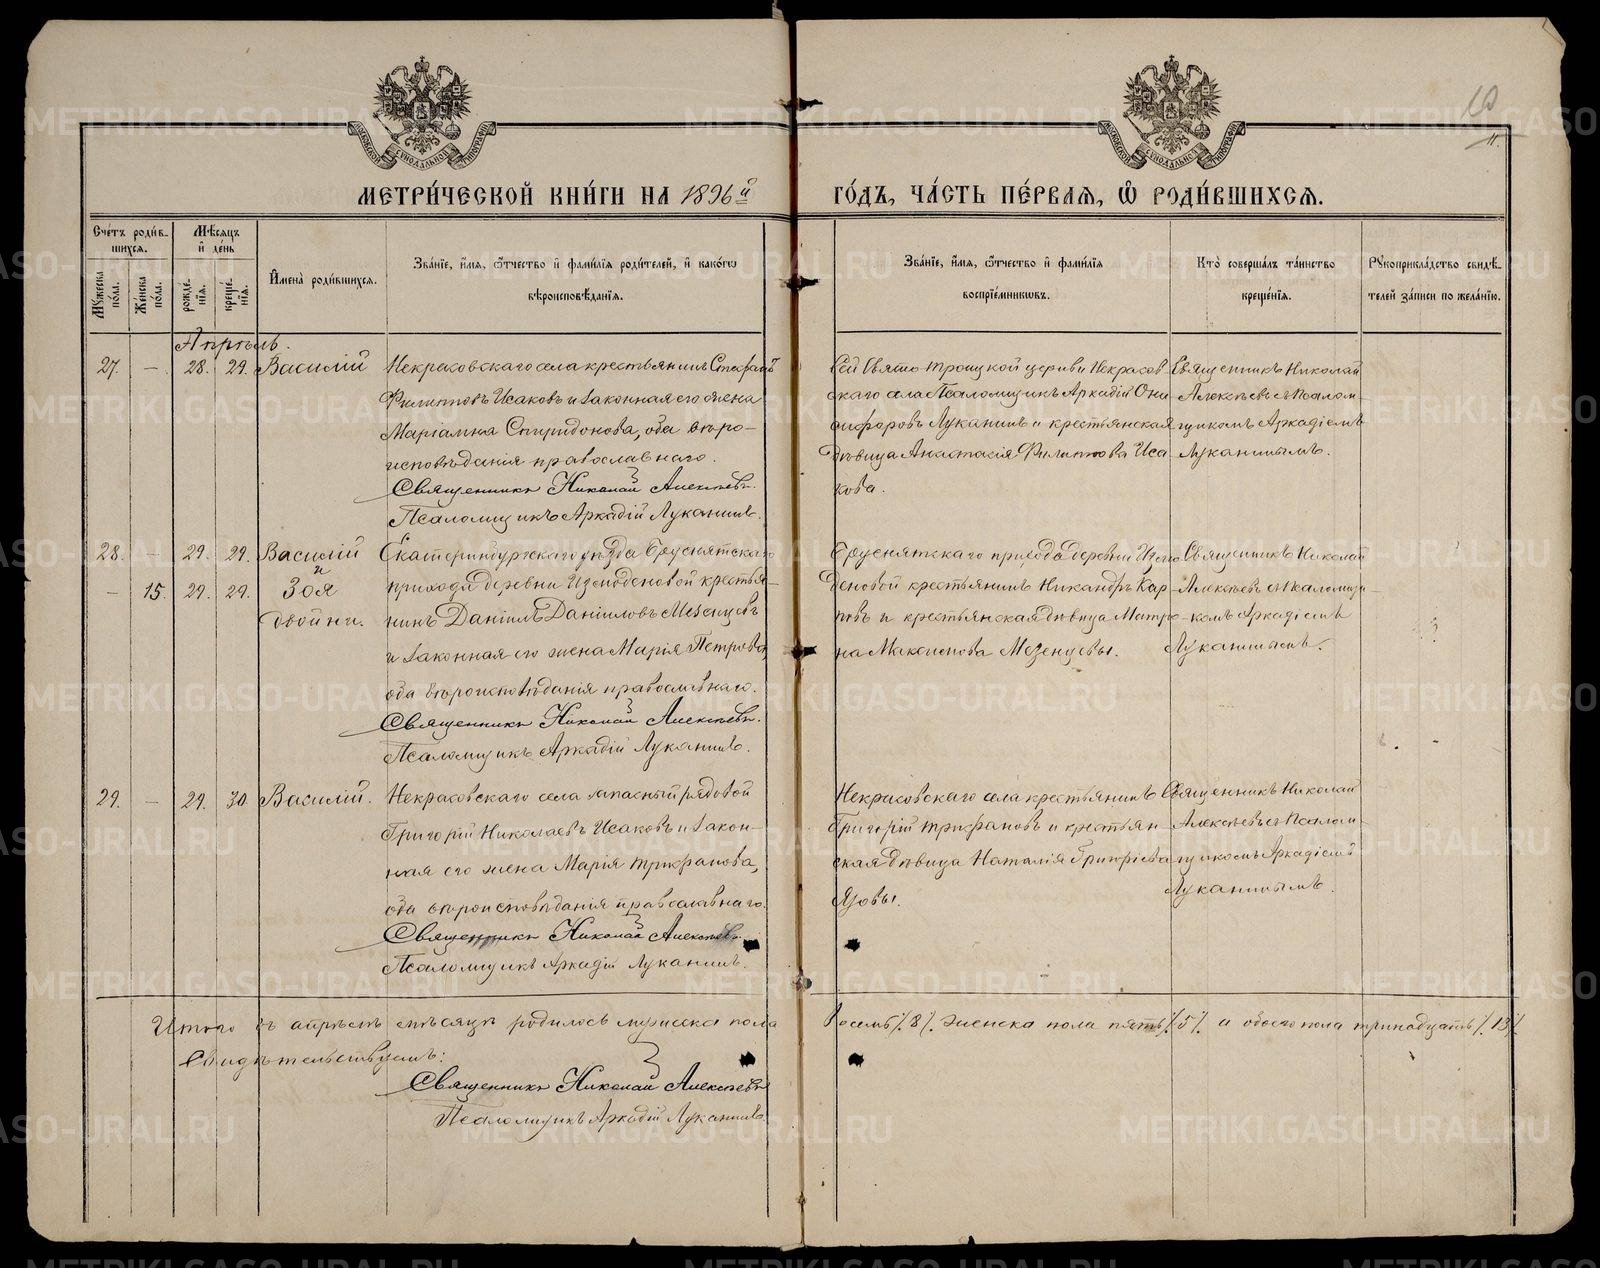 МЕТРИ́ЧЕСКОЙ КНИ́ГИ НА 1896й
ГО́ДЪ, ЧА́СТЬ ПЕ́РВАЯ, Ѽ РОДИ́ВШИХСЯ.
10
Сче́тъ роди́в-
шихся.
Мѣ́сяцъ
и де́нь
Мꙋжеска по́ла.
Же́нска по́ла.
рожде́-
нїѧ.
креще́-
нїѧ.
Имена̀ роди́вшихся.
Зва́нїе, и́мѧ, ѻ́тчество и фами́лїѧ роди́телей, и како́гѡ
вѣроисповѣ́данїѧ.
Зва́нїе, и́мѧ, ѻ́тчество и фами́лїѧ
воспрїе́мникѡвъ.
Кто̀ соверша́лъ та́инство
креще́нїѧ.
Рꙋкоприкла́дство свидѣ́-
телей за́писи по жела́нїю.
Апрѣль.
27. — 28. 29. Василій
Некрасовскаго села крестьянинъ Стефанъ
Филипповъ Исаковъ и законная его жена
Маріамна Спиридонова, оба вѣро-
исповѣданія православнаго.
Священникъ Николай Алексѣевъ.
Псаломщикъ Аркадій Луканинъ.
Сей Свято-Троицкой церкви Некрасов
скаго села Псаломщикъ Аркадій Они
сифоровъ Луканинъ и крестьянская
дѣвица Анастасія Филиппова Иса
кова.
Священникъ Николай
Алексѣевъ съ псалом-
щикомъ Аркадіемъ
Луканинымъ.
28. — 29. 29. Василій
и
— 15. 29. 29. Зоя
двойни.
Екатеринбургскаго уѣзда Бруснятскаго
прихода деревни Измоденовой крестья-
нинъ Даніилъ Даніиловъ Мезенцевъ
и законная его жена Марія Петрова,
оба вѣроисповѣданія православнаго.
Священникъ Николай Алексѣевъ.
Псаломщикъ Аркадій Луканинъ.
Бруснятскаго прихода деревни Измо
деновой крестьянинъ Никандръ Кар
повъ и крестьянская дѣвица Матро
на Максимова Мезенцевы.
Священникъ Николай
Алексѣевъ съ псаломщи-
комъ Аркадіемъ
Луканинымъ.
29. — 29. 30. Василій.
Некрасовскаго села запасный рядовой
Григорій Николаевъ Исаковъ и закон-
ная его жена Марія Трифанова,
оба вѣроисповѣданія православнаго.
Священникъ Николай Алексѣевъ.
Псаломщикъ Аркадій Луканинъ.
Некрасовскаго села крестьянинъ
Григорій Трифановъ и крестьян-
ская дѣвица Наталія Григоріева
Язовы.
Священникъ Николай
Алексѣевъ съ Псалом-
щикомъ Аркадіемъ
Луканинымъ.
Итого въ апрѣлѣ мѣсяцѣ родилось мужеска пола восемь /8/. женска пола пять /5/. а обоего пола тринадцать /13/
Свидѣтельствуемъ:
Священникъ Николай Алексѣевъ
Псаломщикъ Аркадій Луканинъ